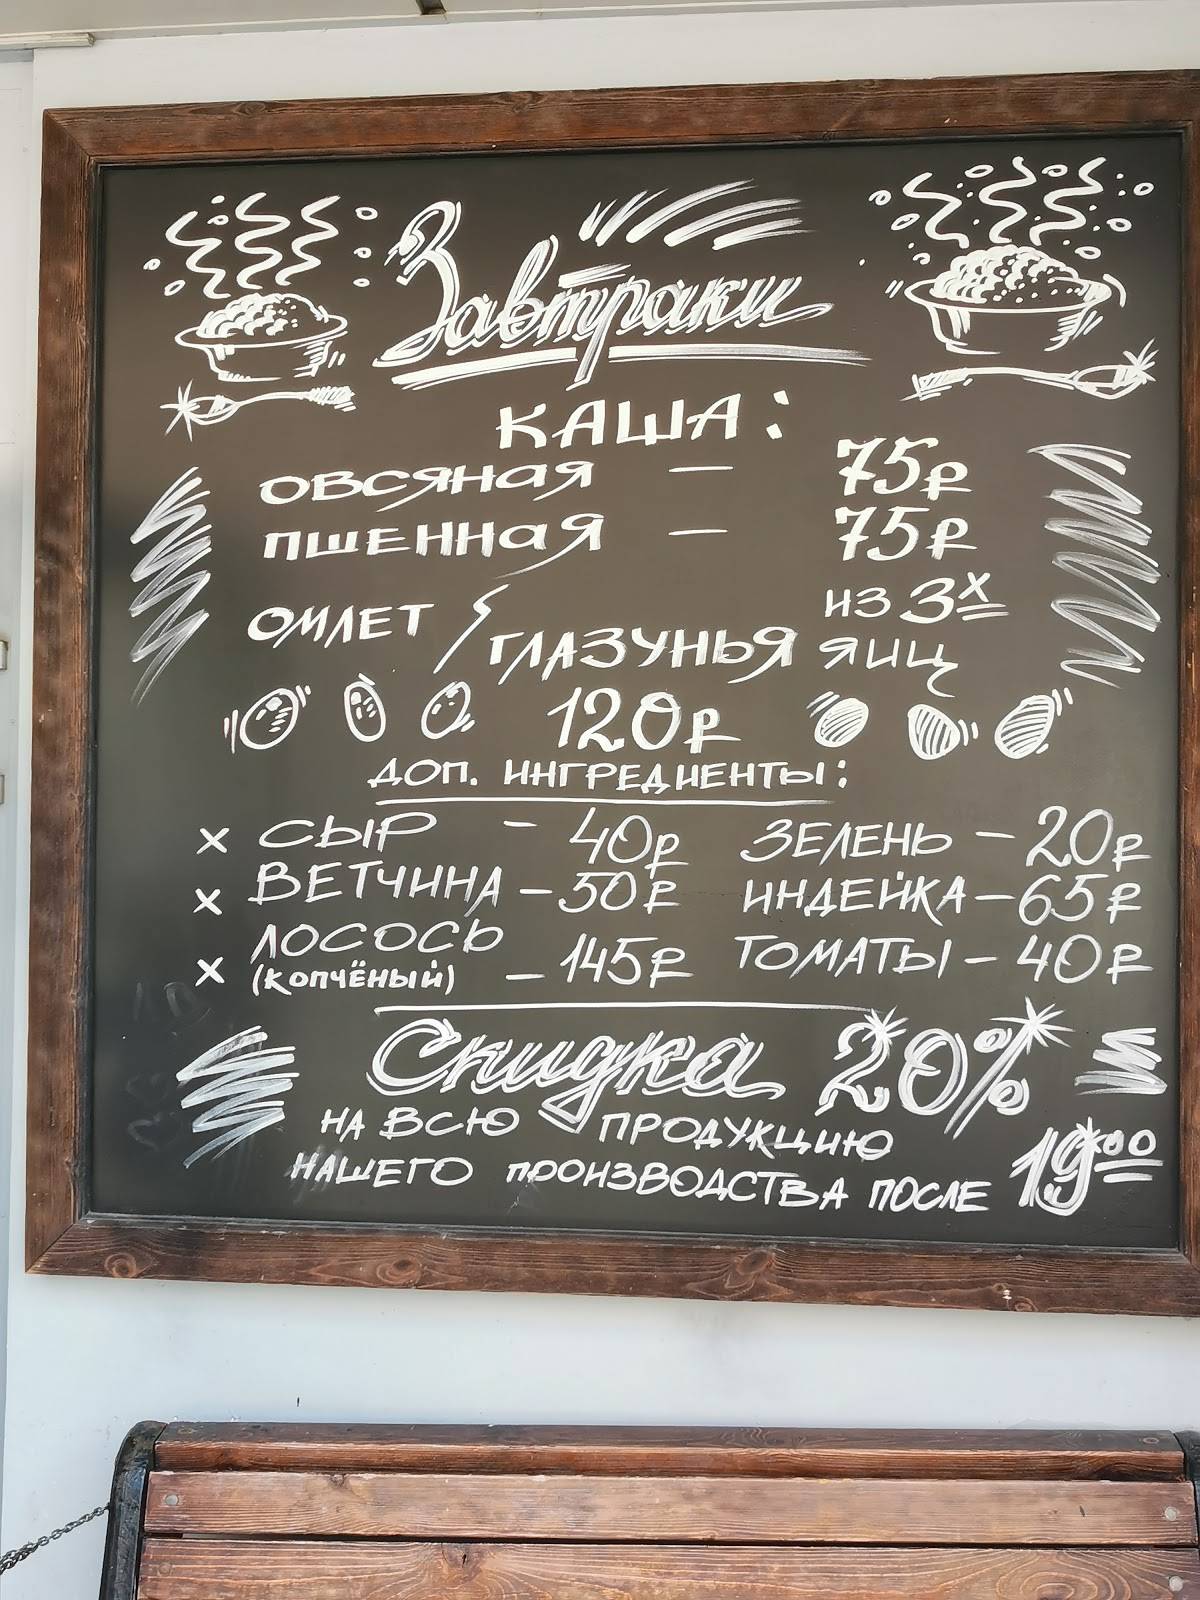 Завтраки
КАША:
ОВСЯНАЯ — 75₽
ПШЕННАЯ — 75₽
ОМЛЕТ / ГЛАЗУНЬЯ ИЗ 3х ЯИЦ
120₽
ДОП. ИНГРЕДИЕНТЫ:
× СЫР – 40₽ ЗЕЛЕНЬ – 20₽
× ВЕТЧИНА – 50₽ ИНДЕЙКА – 65₽
× ЛОСОСЬ (КОПЧЁНЫЙ) – 145₽ ТОМАТЫ – 40₽
Скидка 20%
НА ВСЮ ПРОДУКЦИЮ
НАШЕГО ПРОИЗВОДСТВА ПОСЛЕ 19⁰⁰